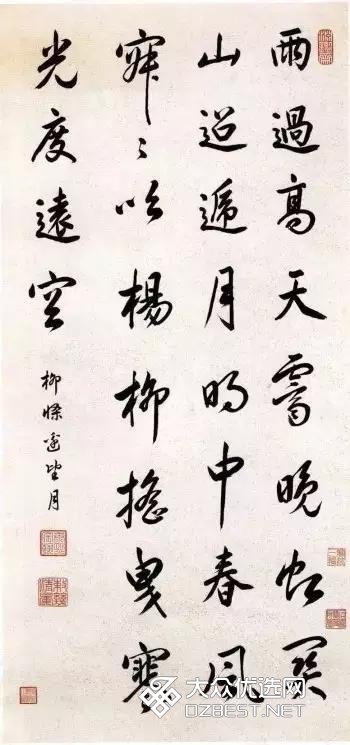 雨過高天霽晚虹關
山迢遞月明中春風
寂〻吹楊柳搖曳寒
光度遠空
柳條邊望月
大众优选网
DZBEST.NET